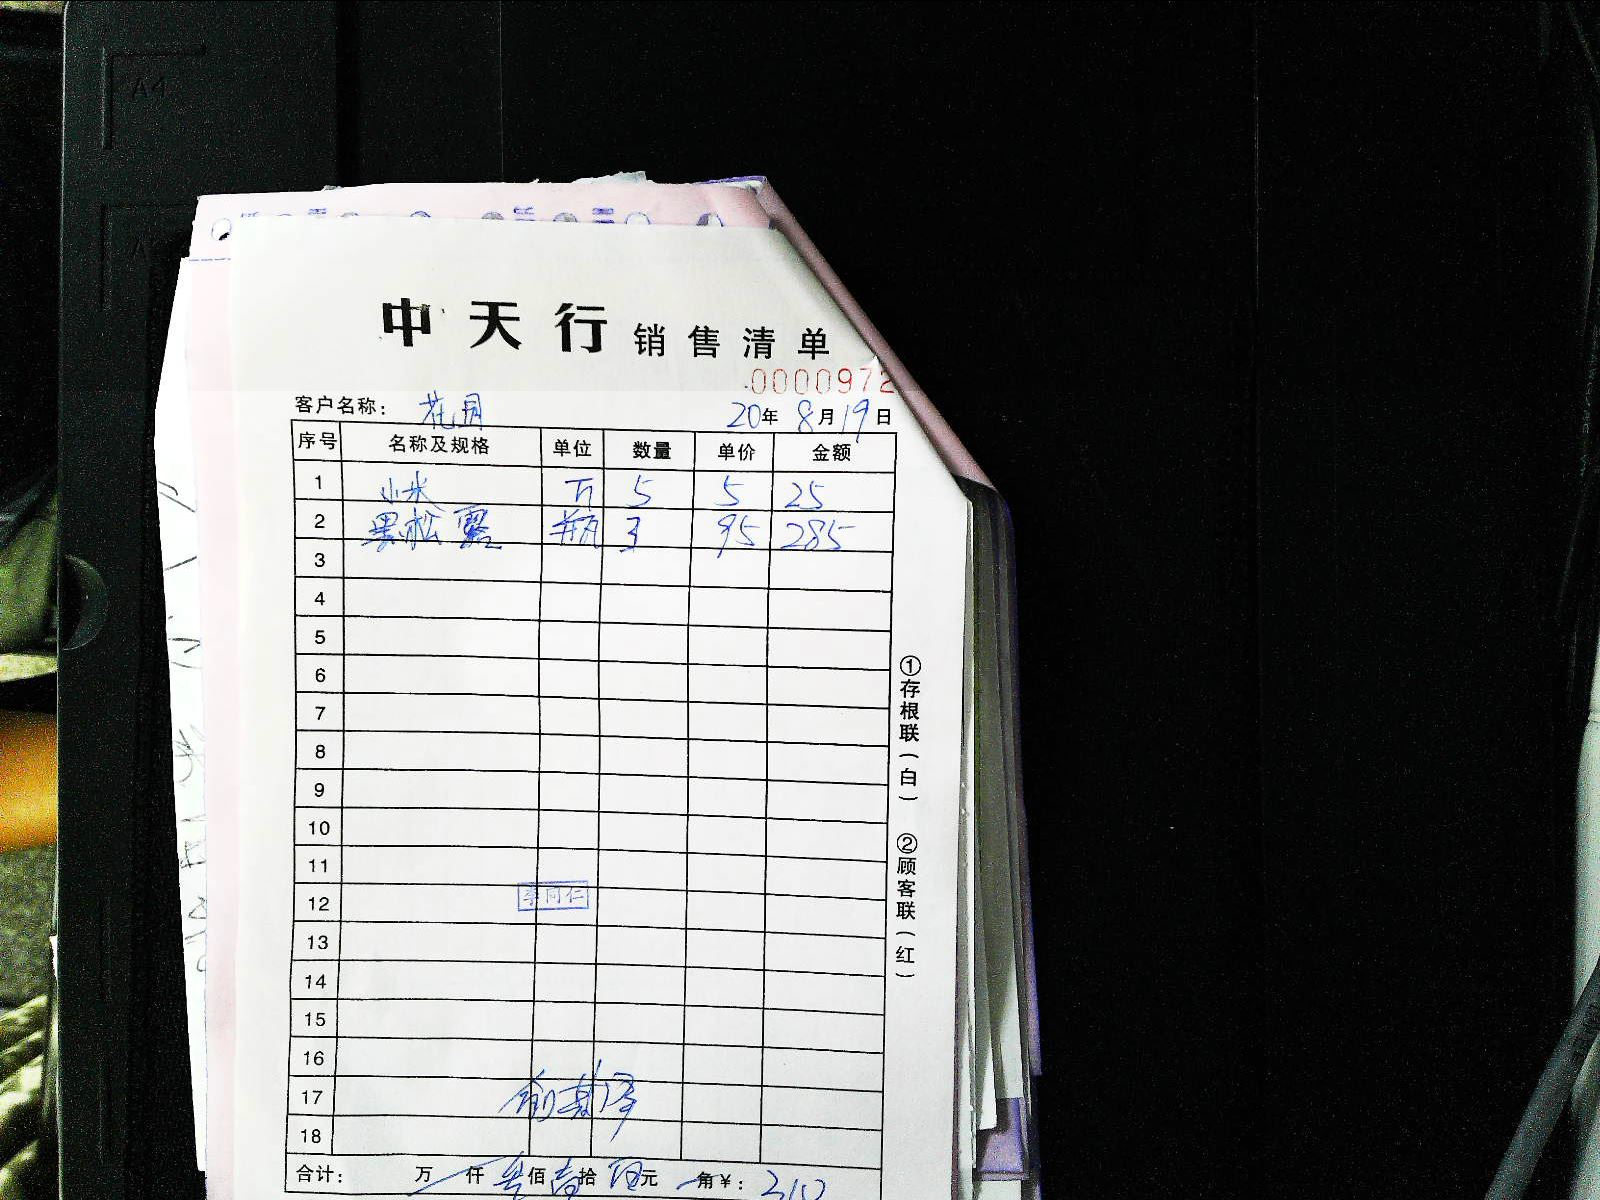 中天行 销售清单
0000972
客户名称: 花月 20年 8月19日
序号 名称及规格 单位 数量 单价 金额
1 小米 斤 5 5 25
2 黑松露 瓶 3 95 285
3
4
5
6
7
8
9
10
11
12 李同仁
13
14
15
16
17
18
合计: 万 仟 叁佰 壹拾 元 角¥: 310
①存根联(白) ②顾客联(红)
A4